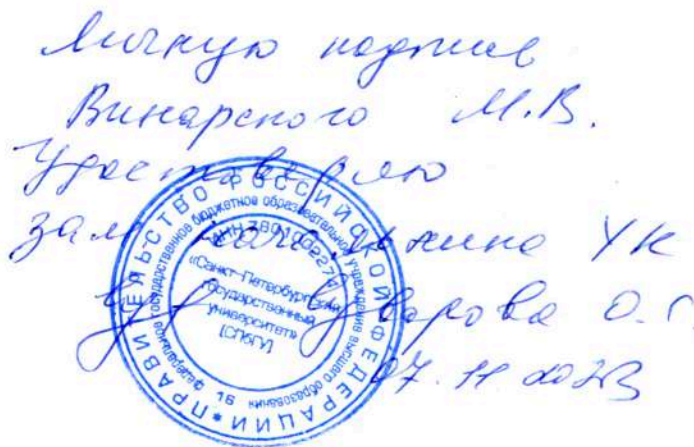 Личную подпись
Винарского М.В.
Удостоверяю
зам начальника УК
Уварова О.С.
07.11.2023
ПРАВИТЕЛЬСТВО РОССИЙСКОЙ ФЕДЕРАЦИИ
федеральное государственное бюджетное образовательное учреждение высшего образования
«Санкт-Петербургский
государственный
университет»
(СПбГУ)
16